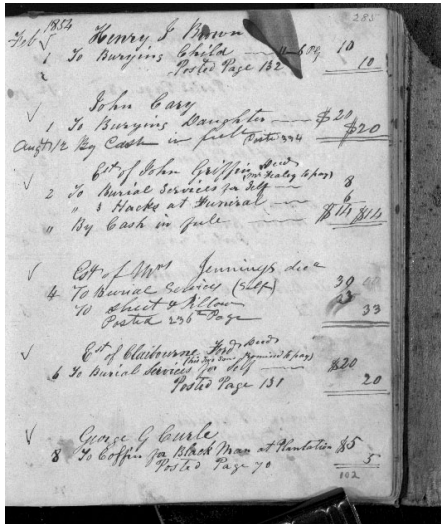 285
1854
Feb Henry J Brown
1 To Burying Child 10
2 Posted Page 132 10
John Cary
1 To Burying Daughter $20
Augt 12 By Cash in full Posted 394 $20
Est of John Griffin Decd
2 To Burial Services for Self 8
" 3 Hacks at Funeral 6
" By Cash in full $14 $14
Est of Mrs Jennings decd
4 To Burial Services (Self) 30
To Sheet & Pillow 3
Posted 236th Page 33
Est of Claibourne Ford Decd
6 To Burial Services for Self $20
Posted Page 131 20
George G Curle
8 To Coffin for Black Man at Plantation $5
Posted Page 70 5
102